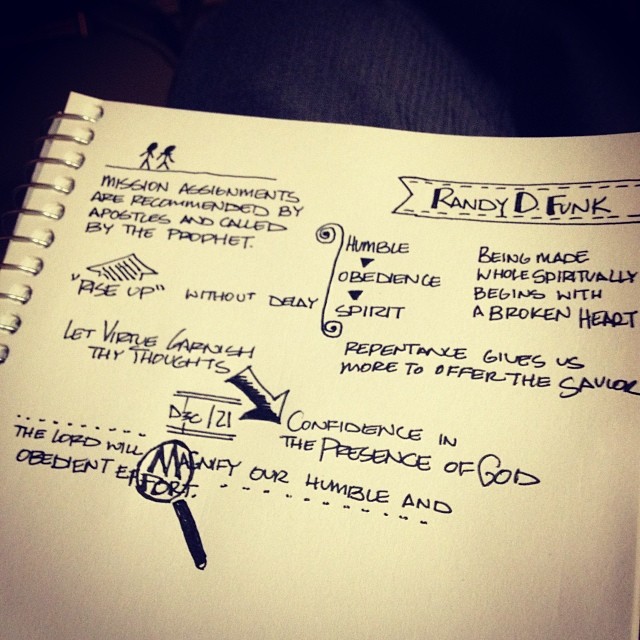 MISSION ASSIGNMENTS
ARE RECOMMENDED BY
APOSTLES AND CALLED
BY THE PROPHET.
RANDY D. FUNK
"RISE UP" WITHOUT DELAY
HUMBLE
OBEDIENCE
SPIRIT
BEING MADE
WHOLE SPIRITUALLY
BEGINS WITH
A BROKEN HEART
REPENTANCE GIVES US
MORE TO OFFER THE SAVIOR
LET VIRTUE GARNISH
THY THOUGHTS
D&C/121
CONFIDENCE IN
THE PRESENCE OF GOD
THE LORD WILL MAGNIFY OUR HUMBLE AND
OBEDIENT EFFORT.